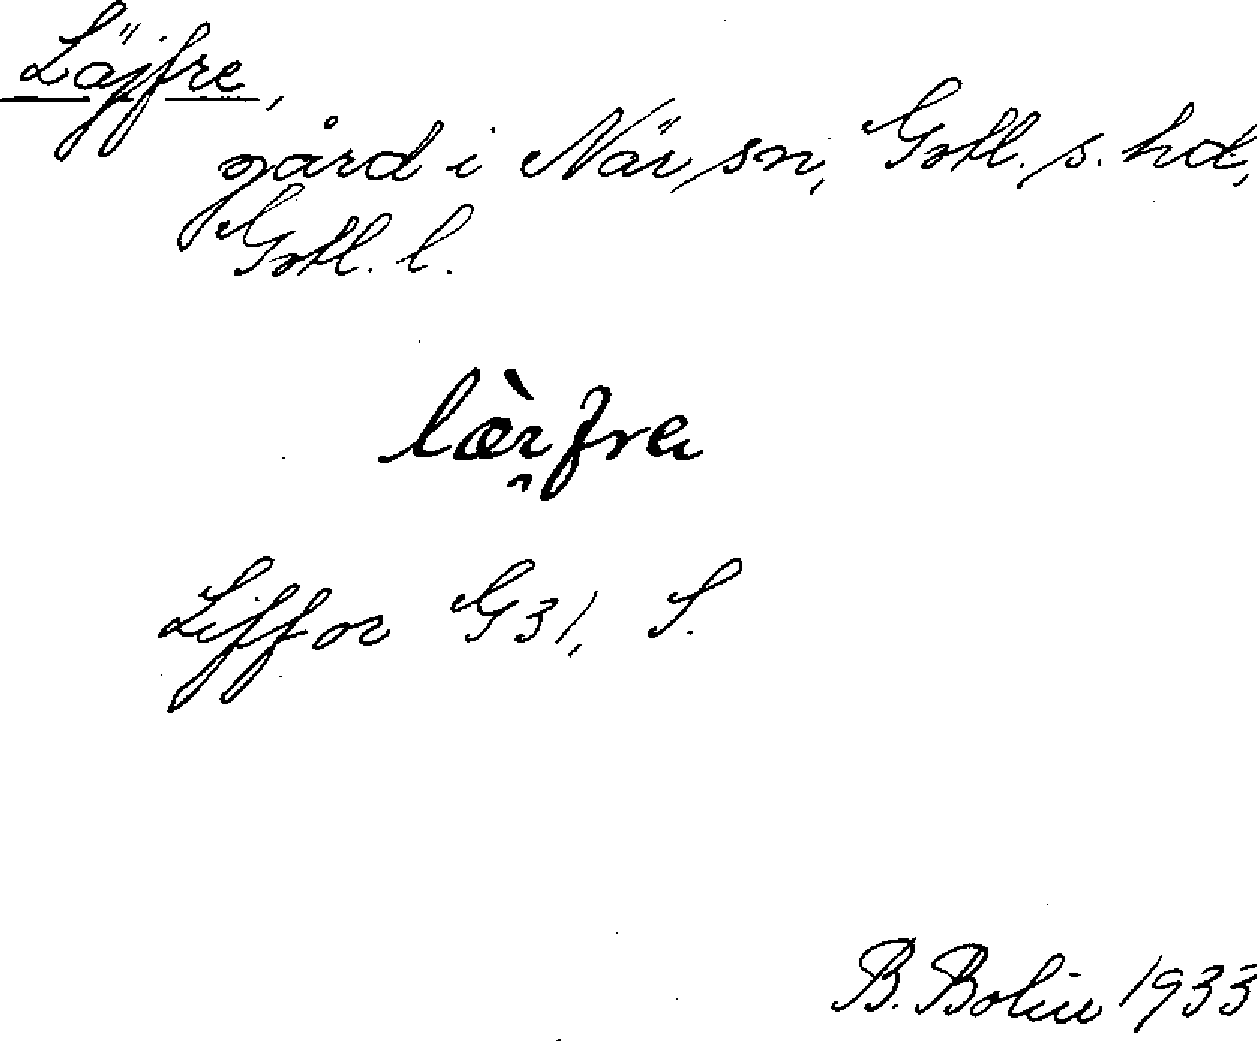 Läjfre,
gård i När, sn, Gotl. s. hd,
Gotl. l.
Liffor G31, S.
B. Bolin 1933